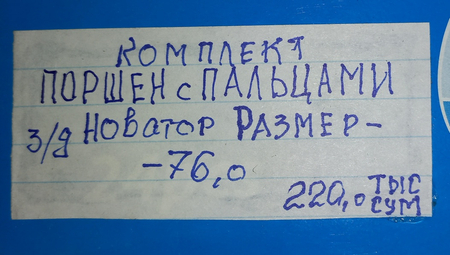 КОМПЛЕКТ
ПОРШЕН с ПАЛЬЦАМИ
З/д НОВАТОР РАЗМЕР-
-76,0
220,0 ТЫС
СУМ